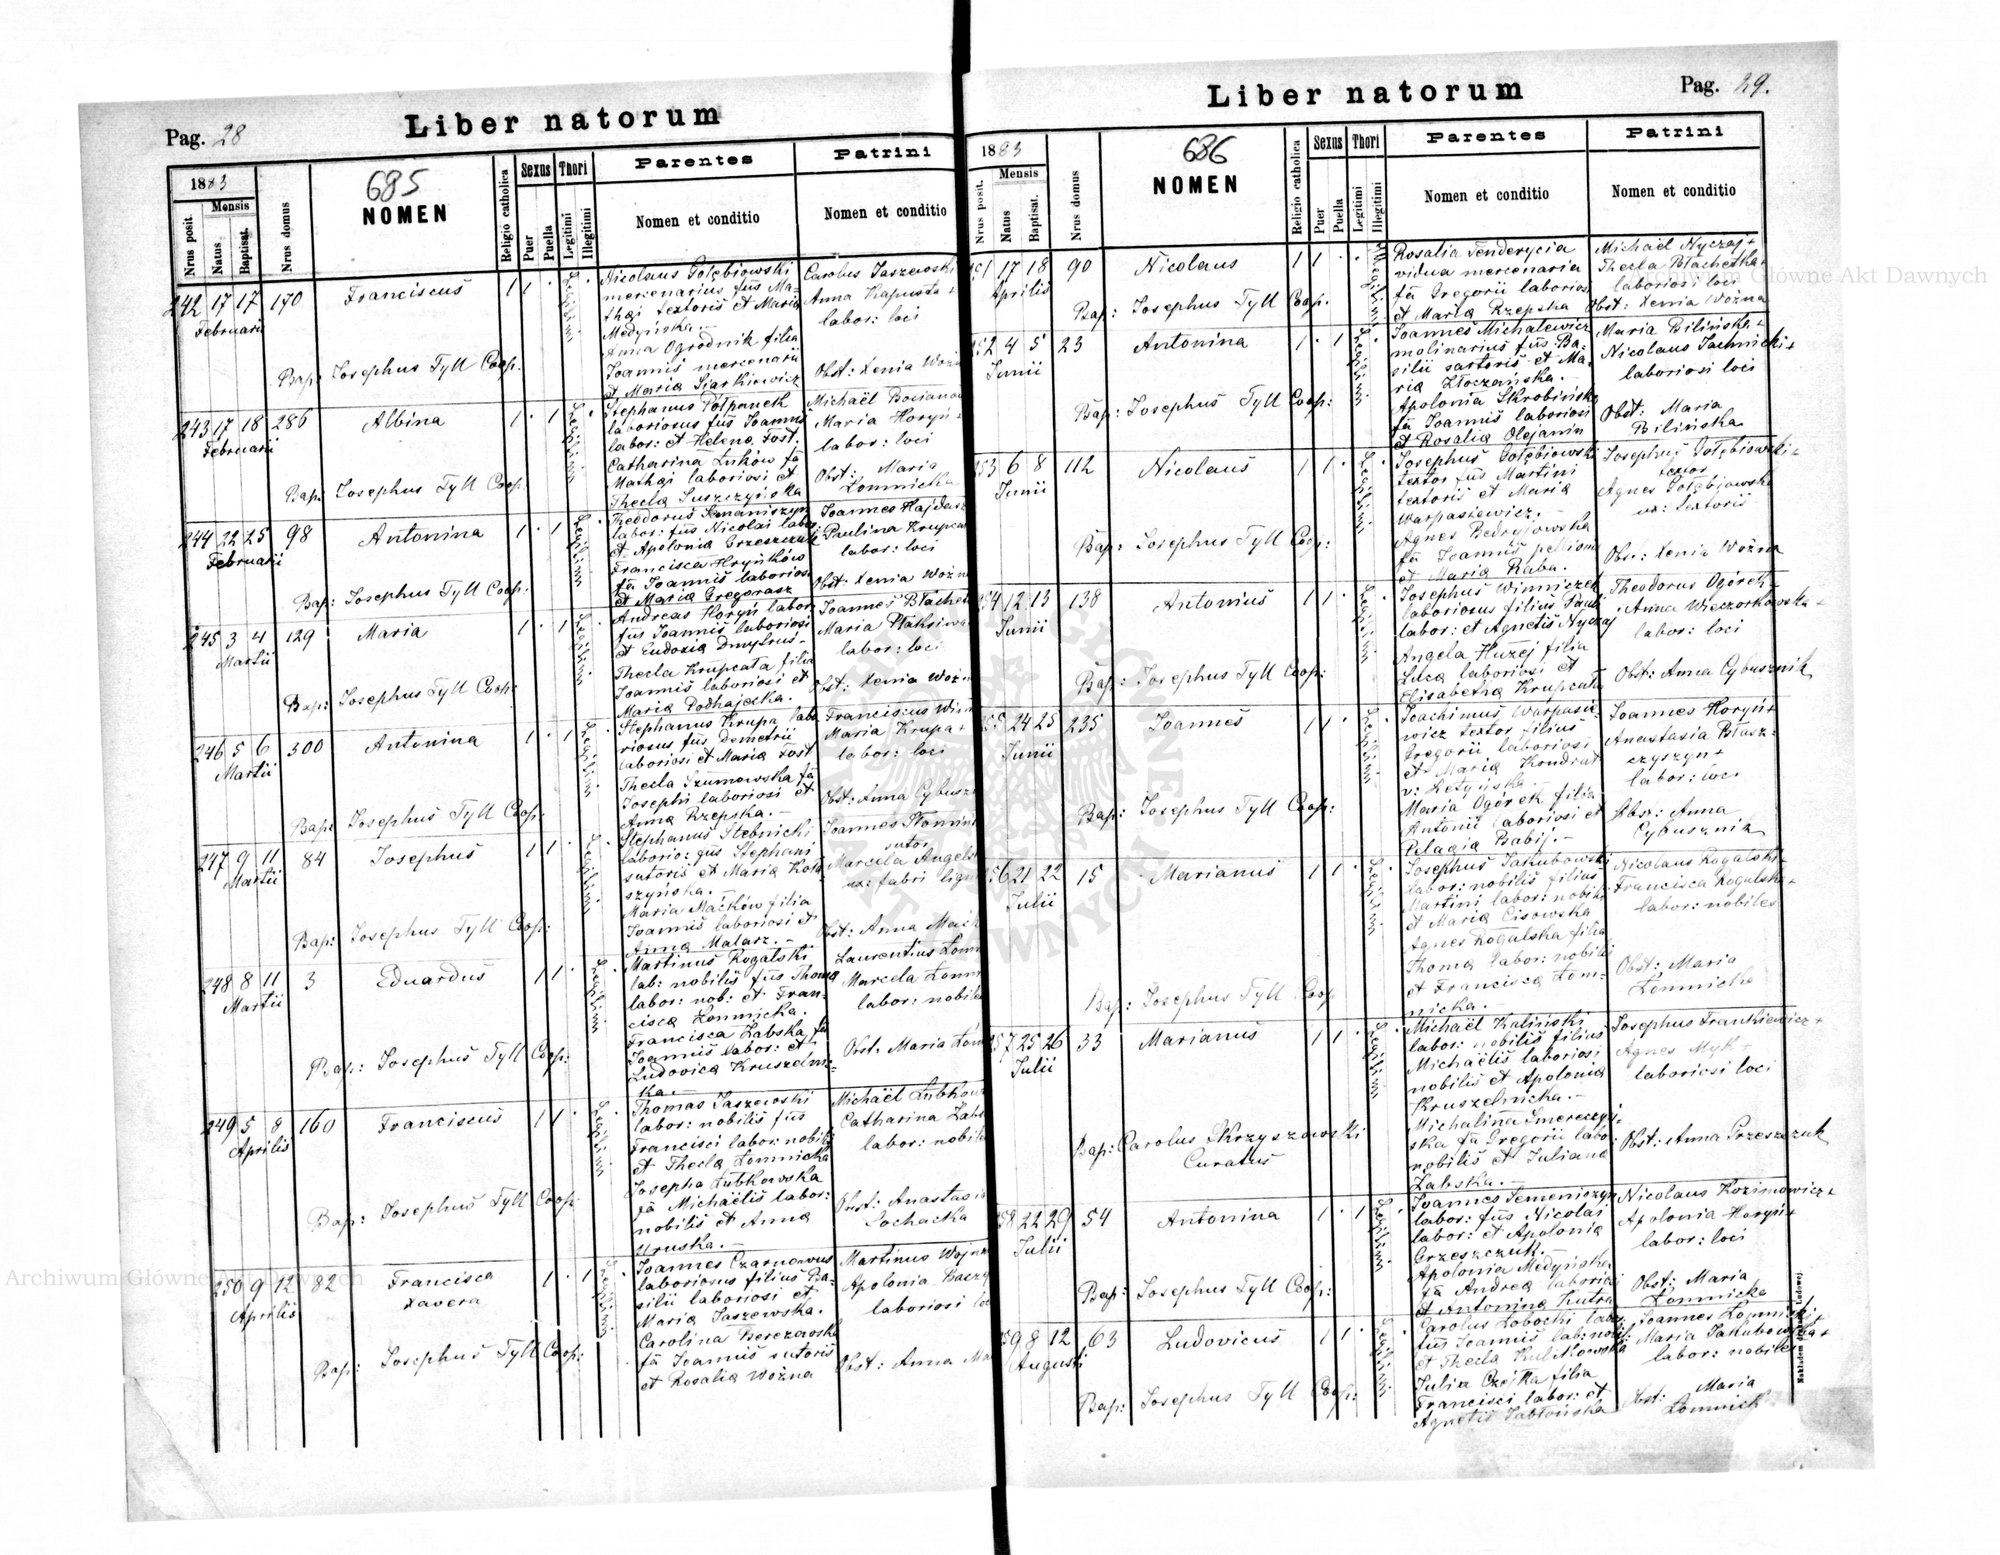 Liber natorum
Pag. 28
1883
Nrus posit.
Mensis
Natus
Baptisat.
Nrus domus
685
NOMEN
Religio catholica
Sexus
Puer
Puella
Thori
Legitimi
Illegitimi
Parentes
Nomen et conditio
Patrini
Nomen et conditio
242 17 17 170 Franciscus 1 1
Februarii
Bap: Josephus Tyll Coop.
Nicolaus Gołębiowski
mercenarius fus Ma-
thai textoris et Maria
Medyńska.
Anna Ogrodnik filia
Joannis mercenarii
et Maria Siarkiewicz
Carolus Jaszewski
Anna Kapusta +
labor: loci
Obst: Xenia
243 17 18 286 Albina 1 1
Februarii
Bap: Josephus Tyll Coop.
Stephanus Potpanek
laboriosus fus Joannis
labor: et Helena Tost.
Catharina Łuków fa
Mathai laboriosi et
Thecla Suszczyńska
Michaël
Maria Horyń +
labor: loci
Obst: Maria
Łomnicka
244 22 25 98 Antonina 1 1
Februarii
Bap: Josephus Tyll Coop.
Theodorus
labor: fus Nicolai labor:
et Apolonia Grzeszczuk
Francisca Hryńków
fa Joannis laboriosi
et Maria Gregorasz
Joannes
Paulina
labor: loci
Obst: Xenia
245 3 4 129 Maria 1 1
Martii
Bap: Josephus Tyll Coop:
Andreas Horyń labor:
fus Joannis laboriosi
et Eudoxia Dmytruś
Thecla Krupcata filia
Joannis laboriosi et
Maria Podhajecka.
Joannes
Maria
labor: loci
Obst: Xenia
246 5 6 300 Antonina 1 1
Martii
Bap: Josephus Tyll Coop:
Stephanus Krupa labo
riosus fus Demetrii
laboriosi et Maria Tost
Thecla Szumowska fa
Josephi laboriosi et
Anna Rzepska.
Franciscus
Maria Krupa +
labor: loci
Obst: Anna
247 9 11 84 Josephus 1 1
Martii
Bap: Josephus Tyll Coop:
Stephanus Stebnicki
laborio: fus Stephani
sutoris et Maria Koła-
szyńska.
Maria Maćków filia
Joannis laboriosi et
Anna Malarz.
Joannes
sutor
Marcela
ux: fabri
Obst: Anna
248 8 11 3 Eduardus 1 1
Martii
Bap: Josephus Tyll Coop:
Martinus Rogalski
lab: nobilis fus Thoma
labor: nob: et Fran-
cisca Łomnicka.
Francisca Zabska fa
Joannis labor: et
Ludovica Kruszelnic-
ka.
Laurentius
Marcela
labor: nobiles
Obst: Maria
249 5 8 160 Franciscus 1 1
Aprilis
Bap: Josephus Tyll Coop:
Thomas Jaszewski
labor: nobilis fus
Francisci labor: nobilis
et Thecla Łomnicka
Josepha Lubkowska
fa Michaëlis labor:
nobilis et Anna
Uruska.
Michaël
Catharina
labor: nobiles
Obst: Anastasia
Łochacka
250 9 12 82 Francisca 1 1
Aprilis Xavera
Bap: Josephus Tyll Coop:
Joannes Czarnowus
laboriosus filius Ba-
silii laboriosi et
Maria Jaszewska.
Carolina Berezowska
fa Joannis sutoris
et Rosalia Woźna
Martinus
Apolonia
laboriosi loci
Obst: Anna
Liber natorum
Pag. 29.
1883
Nrus posit.
Mensis
Natus
Baptisat.
Nrus domus
686
NOMEN
Religio catholica
Sexus
Puer
Puella
Thori
Legitimi
Illegitimi
Parentes
Nomen et conditio
Patrini
Nomen et conditio
17 18 90 Nicolaus 1 1
Aprilis
Bap: Josephus Tyll Coop.
Rosalia Tenderycia
vidua mercenaria
fa Gregorii laboriosi
et Maria Rzepska
Michaël Nyczaj +
Thecla
laboriosi loci
Obst: Xenia Woźna
2 4 5 23 Antonina 1 1
Junii
Bap: Josephus Tyll Coop:
Joannes Michalewicz
molinarius fus Ba-
silii sartoris et Ma-
ria Złoczańska.
Apolonia Skrobińska
fa Joannis laboriosi
et Rosalia Olejanin
Maria Bilińska +
Nicolaus Jachnicki +
laboriosi loci
Obst: Maria
Bilińska
3 6 8 112 Nicolaus 1 1
Junii
Bap: Josephus Tyll Coop:
Josephus Gołębiowski
textor fus Martini
textoris et Maria
Warpasiewicz.
Agnes Bedryjowska
fa Joannis pellionis
et Maria Raba.
Josephus Gołębiowski +
textor
Agnes Gołębiowska
ux: textoris
Obst: Xenia Woźna
4 12 13 138 Antonius 1 1
Junii
Bap: Josephus Tyll Coop:
Josephus Winniczek
laboriosus filius Pauli
labor: et Agnetis Nyczaj
Angela Huzej filia
Luca laboriosi et
Elisabetha Krupcata
Theodorus Ogórek +
Anna Wieczorkowska +
labor: loci
Obst: Anna Cybusznik
5 24 25 235 Joannes 1 1
Junii
Bap: Josephus Tyll Coop:
Joachimus Warpasie-
wicz textor filius
Gregorii laboriosi
et Maria Kondrat
v: Zetyńska
Maria Ogórek filia
Antonii laboriosi et
Pelagia Babij.
Joannes Horyń +
Anastasia Błasz-
czyszyn +
labor: loci
Obst: Anna
Cybusznik
6 21 22 15 Marianus 1 1
Julii
Bap: Josephus Tyll Coop
Josephus Jakubowski
labor: nobilis filius
Martini labor: nobilis
et Maria Cisowska
Agnes Rogalska filia
Thoma labor: nobilis
et Francisca Łom-
nicka.
Nicolaus Rogalski +
Francisca Rogalska +
labor: nobiles
Obst: Maria
Łomnicka
7 25 26 33 Marianus 1 1
Julii
Bap: Carolus Skrzyszowski
Curatus
Michaël Kaliński
labor: nobilis filius
Michaëlis laboriosi
nobilis et Apolonia
Kruszelnicka.
Michalina Smereczyń-
ska fa Gregorii labo:
nobilis et Juliana
Zabska.
Josephus Frankiewicz +
Agnes Myk +
laboriosi loci
Obst: Anna Grzeszczuk
58 22 29 54 Antonina 1 1
Julii
Bap: Josephus Tyll Coop:
Joannes Semeniszyn
labor: fus Nicolai
labor: et Apolonia
Grzeszczuk.
Apolonia Medyńska
fa Andrea laboriosi
et Antonina Kutra
Nicolaus Kozimowicz +
Apolonia Horyń +
labor: loci
Obst: Maria
Łomnicka
59 8 12 63 Ludovicus 1 1
Augusti
Bap: Josephus Tyll Coop:
Carolus Łobocki labor:
fus Joannis lab: nobil:
et Thecla Kulikowska
Julia Czejka filia
Francisci labor: et
Agnetis Jabłońska
Joannes Łomnicki +
Maria Jakubowska +
labor: nobiles
Obst: Maria
Łomnick
Archiwum Główne Akt Dawnych
Archiwum Główne Akt Dawnych